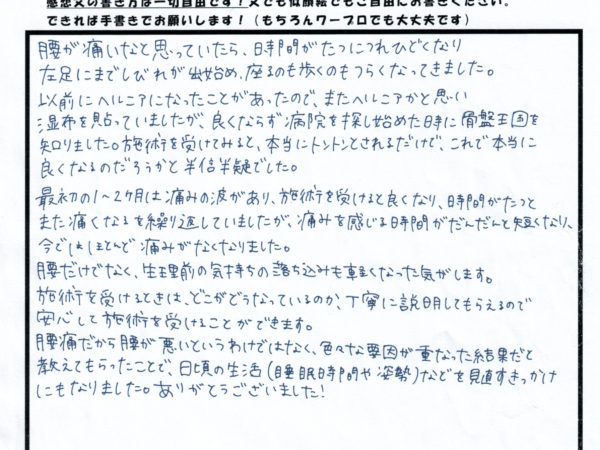 感想文の書き方は一切自由です！文でも似顔絵でもご自由にお書きください。
できれば手書きでお願いします！（もちろんワープロでも大丈夫です）
腰が痛いなと思っていたら、日時間がたつにつれひどくなり
左足にまでしびれが出始め、座るのも歩くのもつらくなってきました。
以前にヘルニアになったことがあったので、またヘルニアかと思い
湿布を貼っていましたが、良くならず病院を探し始めた時に骨盤王国を
知りました。施術を受けてみると、本当にトントンとされるだけで、これで本当に
良くなるのだろうかと半信半疑でした。
最初の1～2ヶ月は痛みの波があり、施術を受けると良くなり、時間がたつと
また痛くなるを繰り返していましたが、痛みを感じる時間がだんだんと短くなり、
今ではほとんど痛みがなくなりました。
腰だけでなく、生理前の気持ちの落ち込みも軽くなった気がします。
施術を受けるときは、どこがどうなっているのか、丁寧に説明してもらえるので
安心して施術を受けることができます。
腰痛だから腰が悪いというわけではなく、色々な要因が重なった結果だと
教えてもらったことで、日頃の生活（睡眠時間や姿勢）などを見直すきっかけ
にもなりました。ありがとうございました！